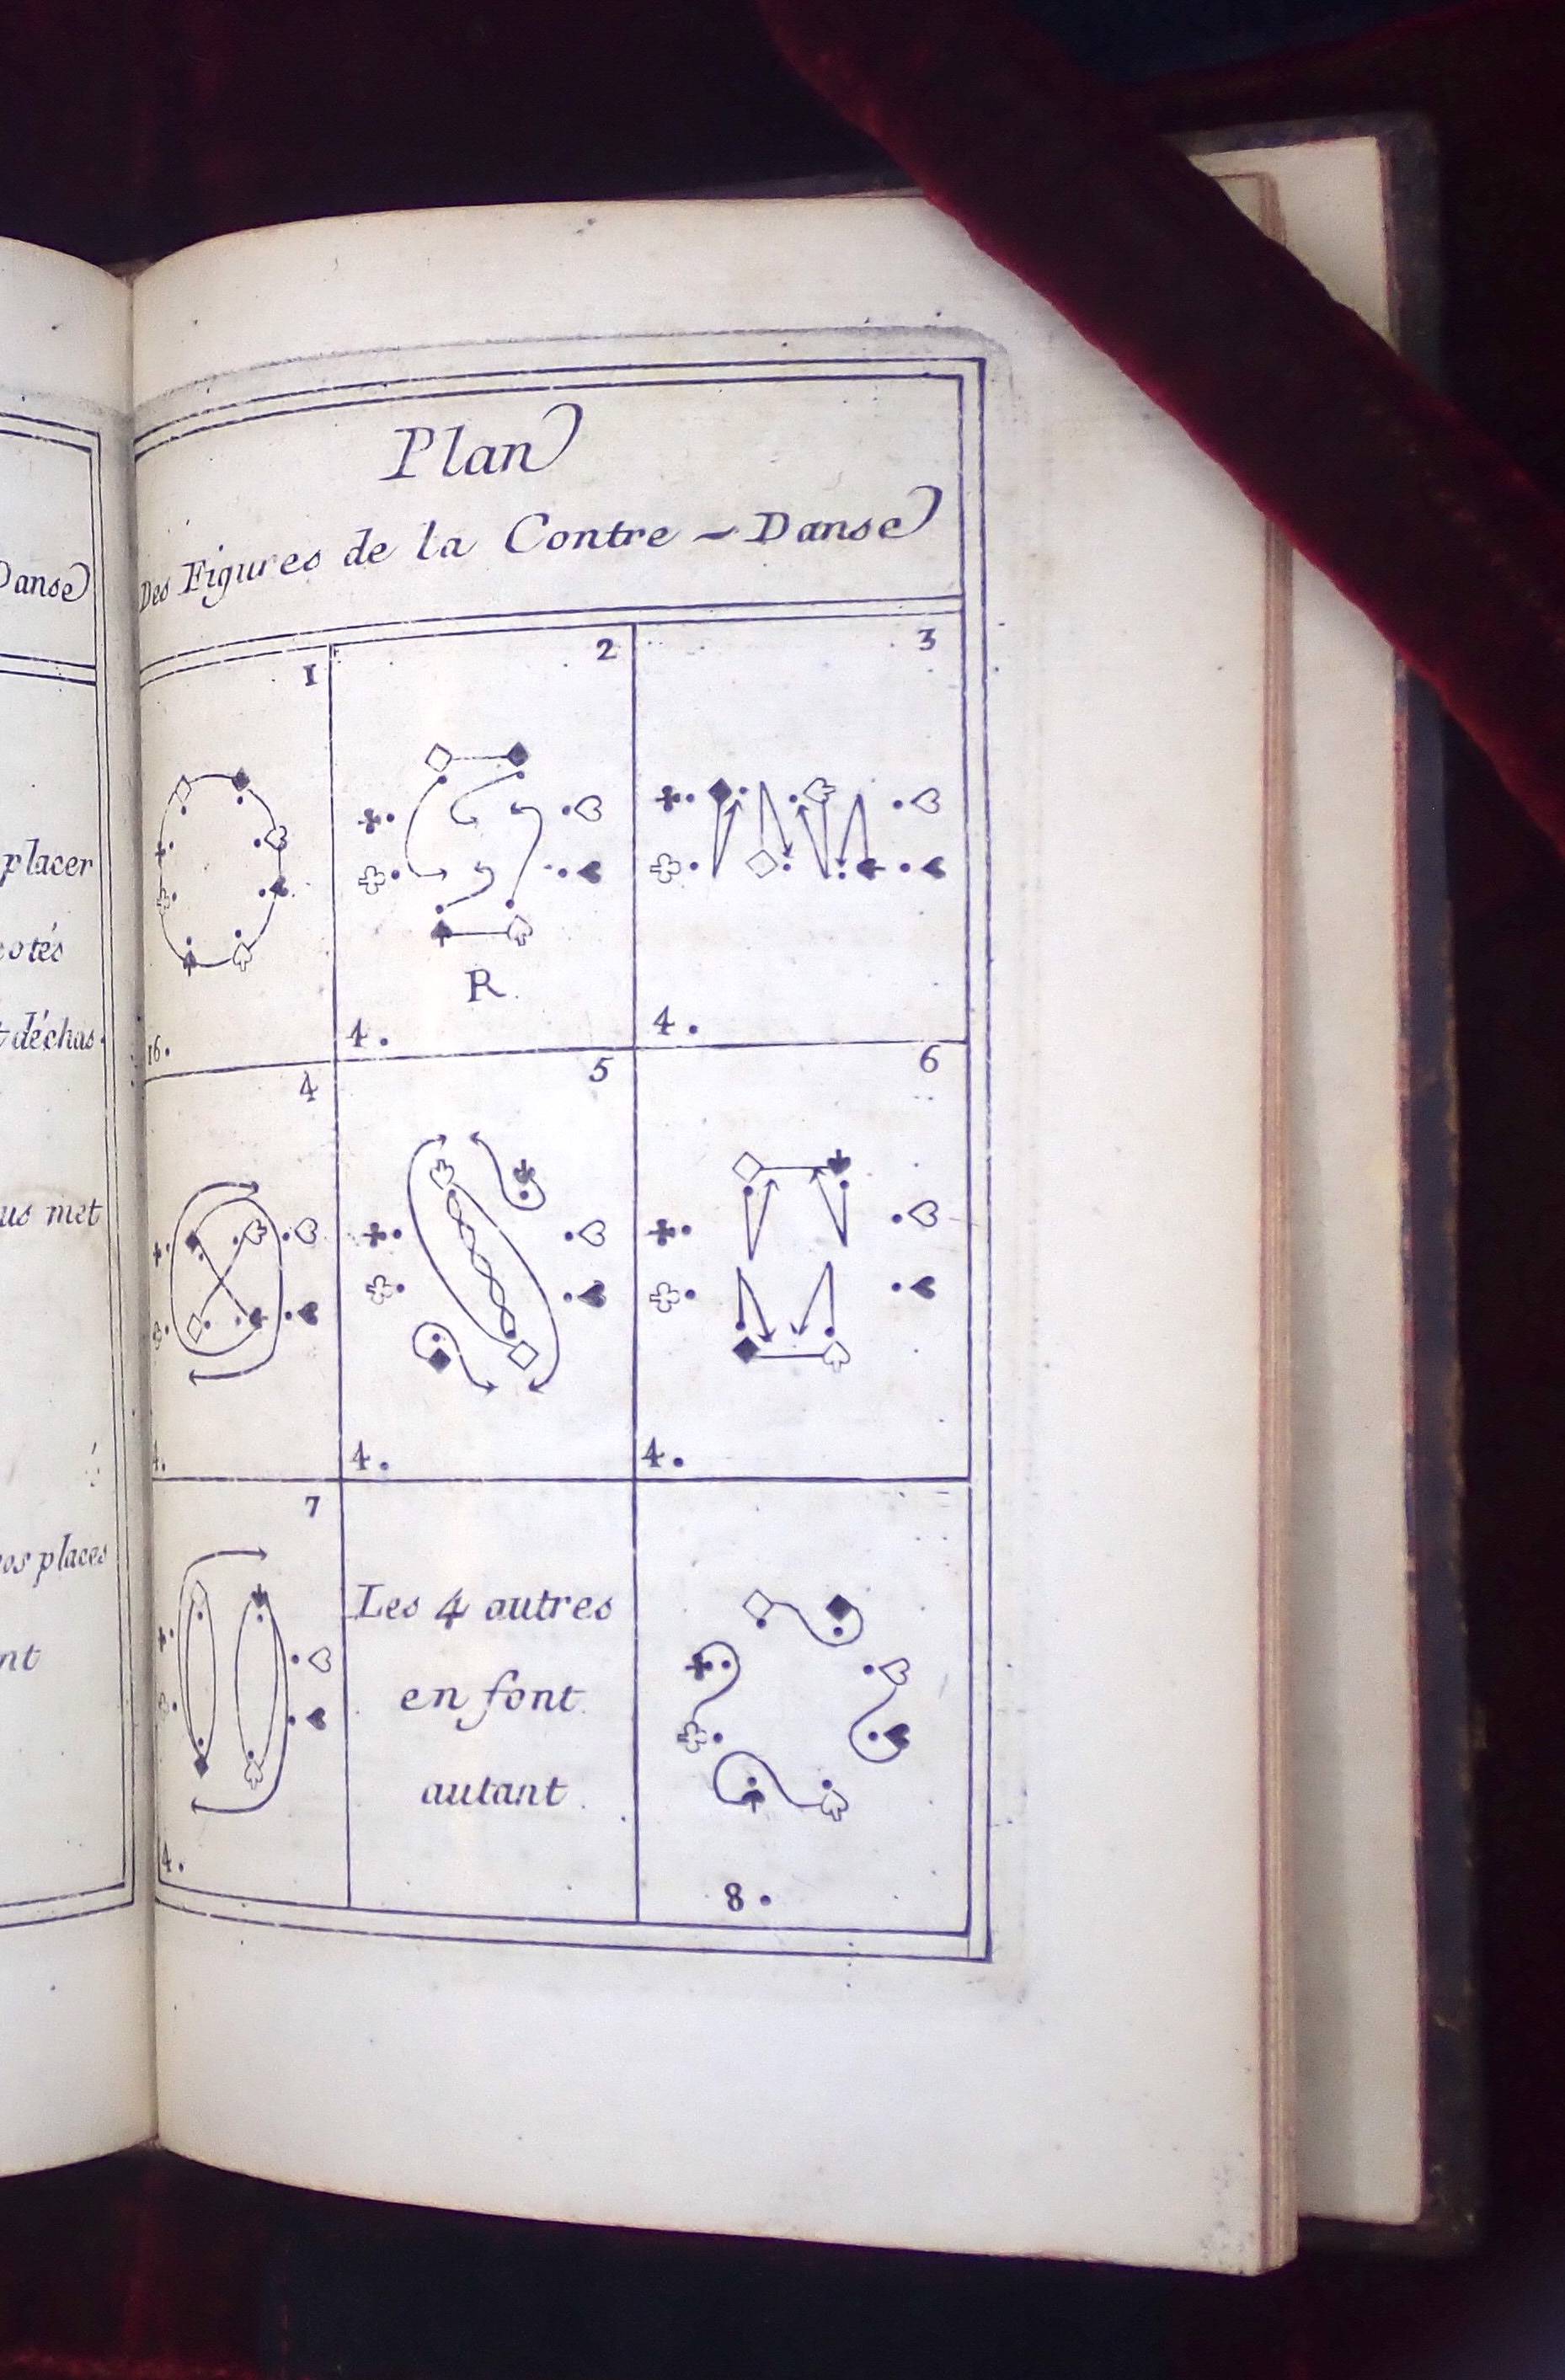 Danse
placer
cotés
t déchas
us met
vos places
nt
Plan
Des Figures de la Contre - Danse
1
2
3
R.
16.
4.
4.
4
5
6
4.
4.
4.
7
Les 4 autres
en font
autant.
4.
8.